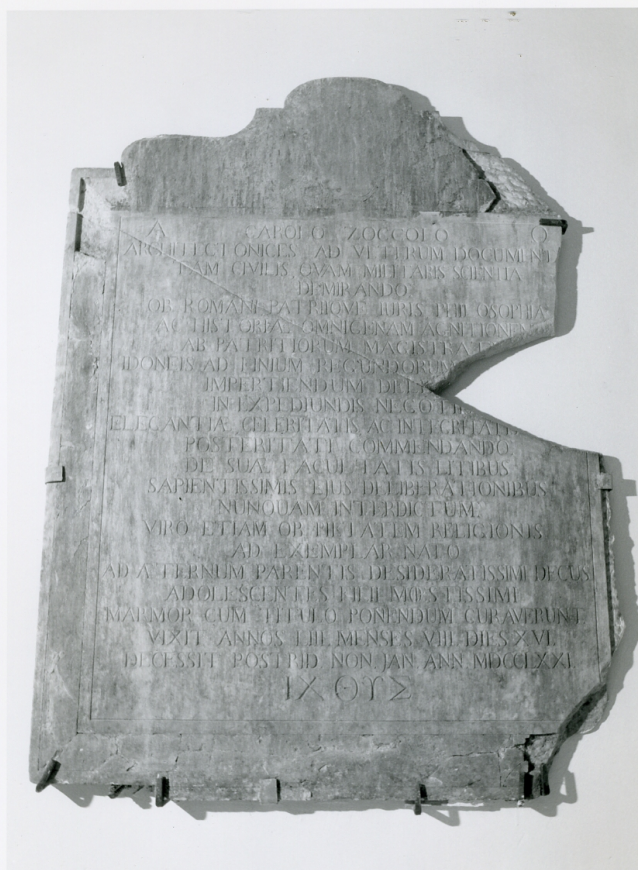 Α CAROLO ZOCCOLO Ω
ARCHITECTONICES AD VETERUM DOCUMENT
TAM CIVILIS QVAM MILITARIS SCIENTIA
DEMIRANDO
OB ROMANI PATRIIQVE IURIS PHILOSOPHIA
AC HISTORIAE OMNIGENAM AGNITIONEM
AB PATENTIORUM MAGISTRAT
IDONEIS AD FINIUM REGUNDORUM
IMPERTIENDUM
IN EXPEDIUNDIS NEGOTI
ELEGANTIA CELERITATIS AC INTEGRITATI
POSTERITATI COMMENDANDO
DE SUAE FACULTATIS LITIBUS
SAPIENTISSIMIS EJUS DELIBERATIONIBUS
NUNQUAM INTERDICTUM
VIRO ETIAM OB PIETATEM RELIGIONIS
AD EXEMPLAR NATO
AD AETERNUM PARENTIS DESIDERATISSIMI DECUS
ADOLESCENTES FILII MŒSTISSIMI
MARMOR CUM TITULO PONENDUM CURAVERUNT
VIXIT ANNOS LIII MENSES VIII DIES XVI
DECESSIT POSTRID NON JAN ANN MDCCLXXI
ΙΧΘΥΣ